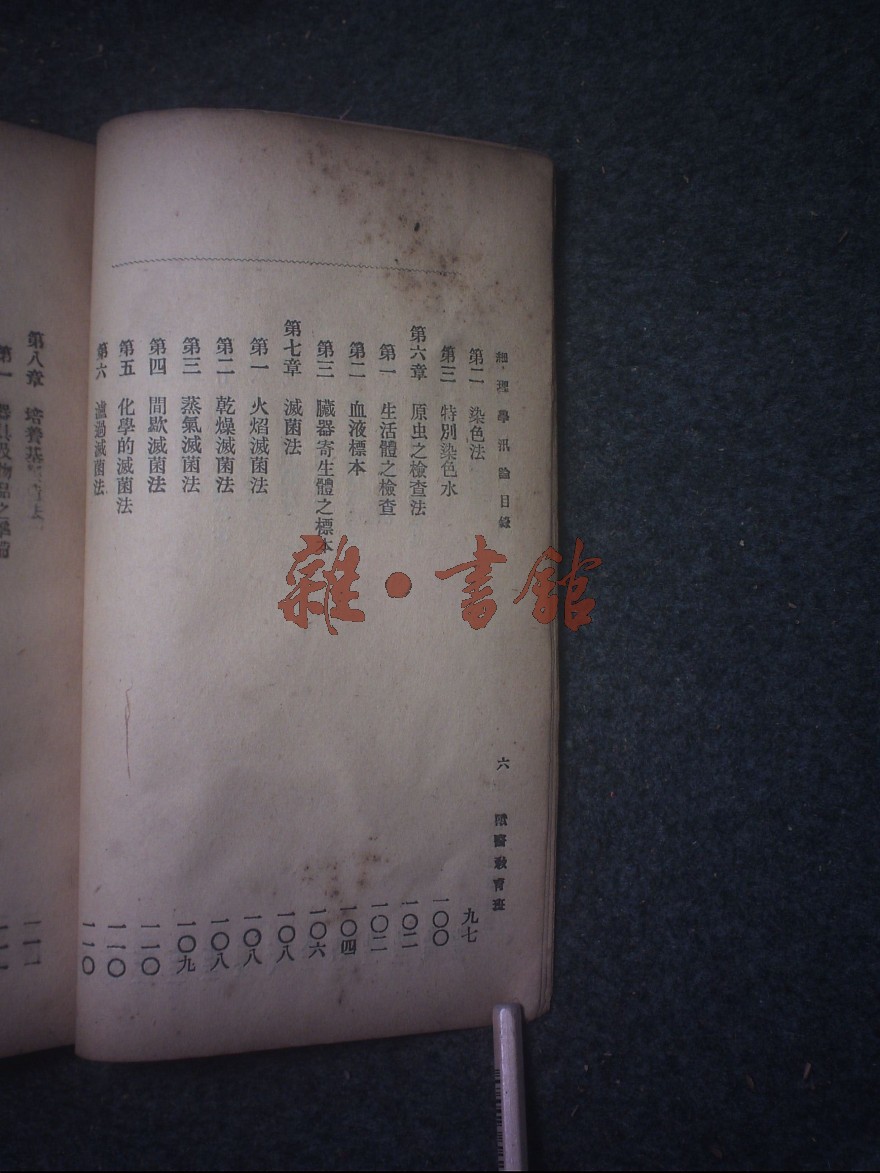 細理學汎論 目錄 六 獸醫教育班
第二 染色法 九七
第三 特別染色水 一〇〇
第六章 原虫之檢查法 一〇二
第一 生活體之檢查 一〇二
第二 血液標本 一〇四
第三 臟器寄生體之標本 一〇六
第七章 滅菌法 一〇八
第一 火焰滅菌法 一〇八
第二 乾燥滅菌法 一〇八
第三 蒸氣滅菌法 一〇九
第四 間歇滅菌法 一一〇
第五 化學的滅菌法 一一〇
第六 濾過滅菌法 一一〇
第八章 培養基
第一 器具及物品之準備
雜·書館